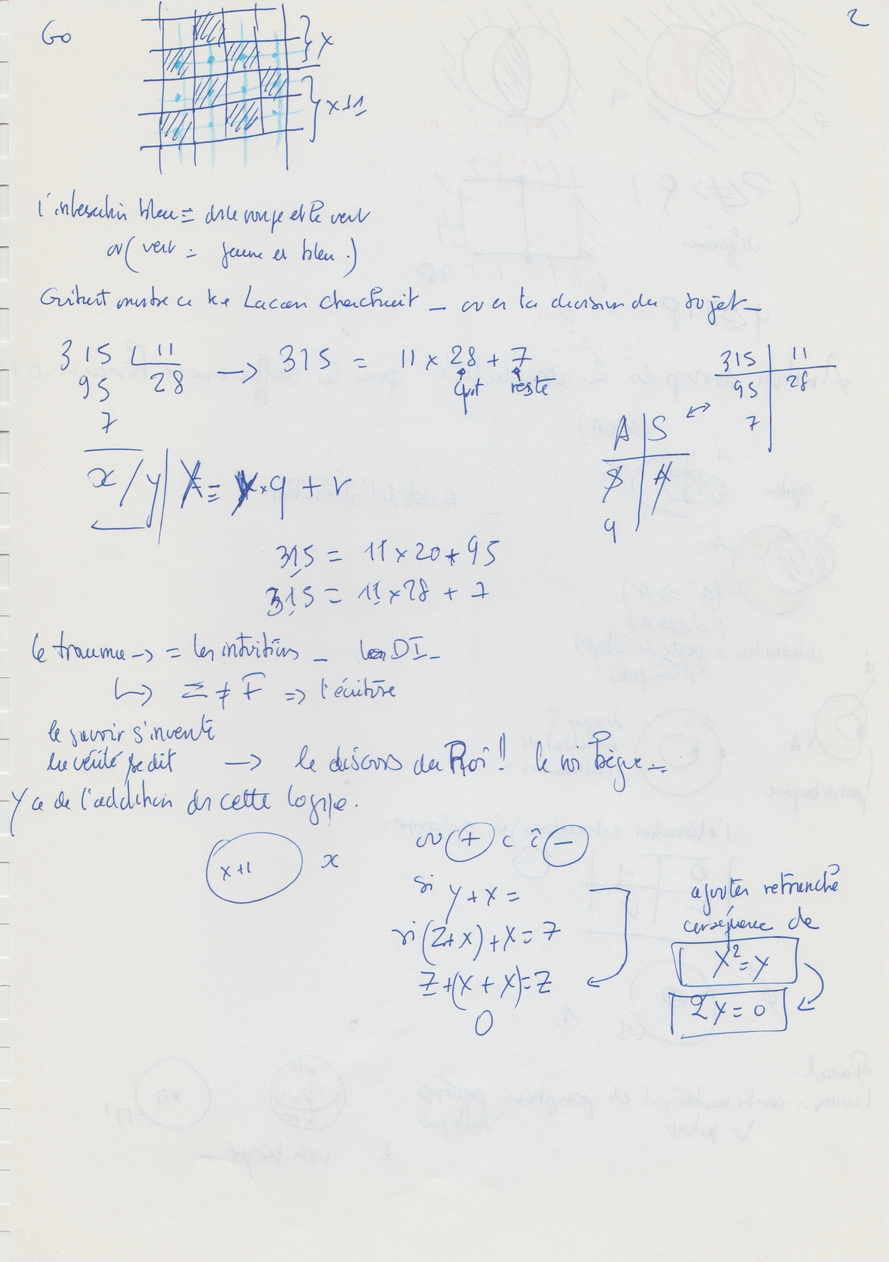 2
Go
x
x 11
l'intersection bleu = ds le rouge et le vert
or (vert = jaune et bleu.)
montre ce ke Lacan cherchait _ avec la division du sujet _
315 | 11 → 315 = 11 x 28 + 7
95 28 quot reste
7
315 | 11
95 | 28
7
A | S
$ | A̸
q
x / y | X = y x q + r
315 = 11 x 20 + 95
315 = 11 x 28 + 7
le trauma → = les intuitions _ DI _
↳ Z ≠ F ⇒ l'écriture
le savoir s'invente
la vérité se dit → le discours du Roi !! le roi Bègue _
Y a de l'addition ds cette logique.
x+1 x
ou + c à -
si y + x =
si (Z + x) + x = Z
Z + (x + x) = Z
0
ajouter retranche
conséquence de
X² = y
2y = 0